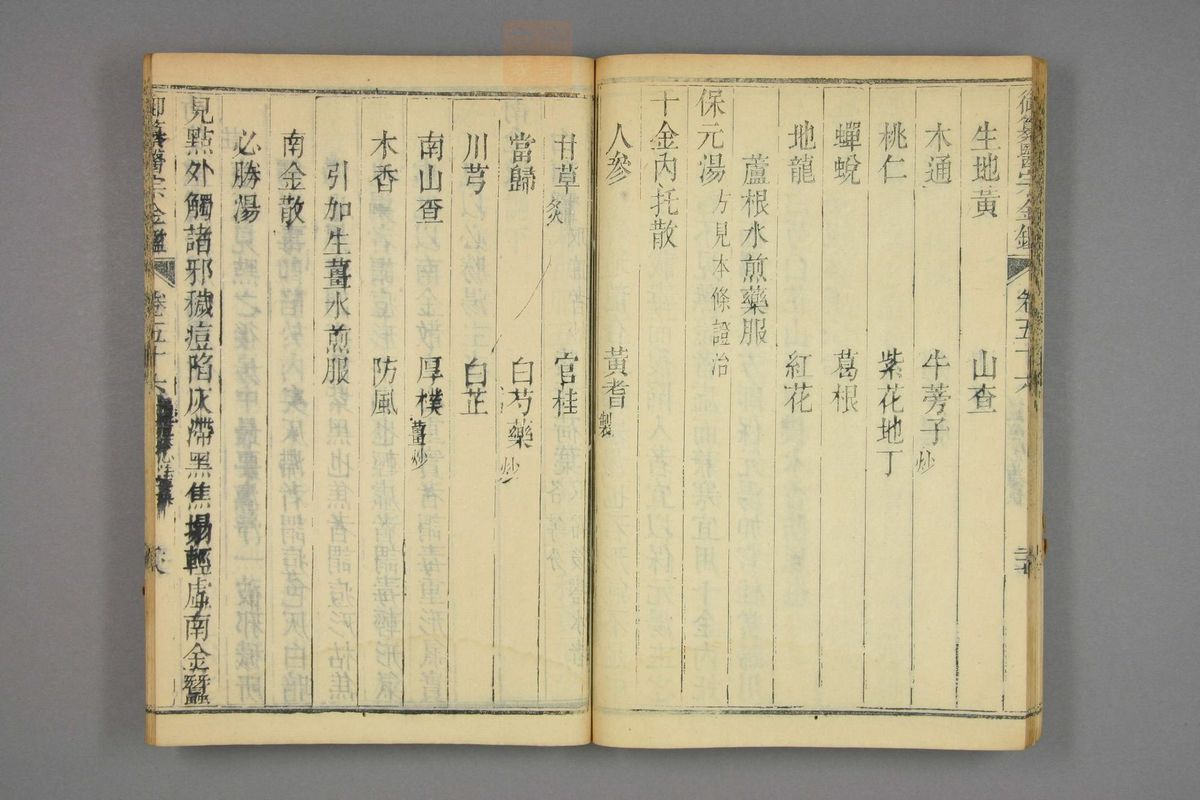 御纂醫宗金鑑 卷五十六
生地黃 山查
木通 牛蒡子炒
桃仁 紫花地丁
蟬蛻 葛根
地龍 紅花
蘆根水煎藥服
保元湯方見本條證治
十金內托散
人參 黃耆製
甘草炙 官桂
當歸 白芍藥炒
川芎 白芷
南山查 厚樸薑炒
木香 防風
引加生薑水煎服
南金散
必勝湯
見點外觸諸邪穢痘陷灰滯黑焦搨輕虛南金蠶
御纂醫宗金鑑 卷五十六